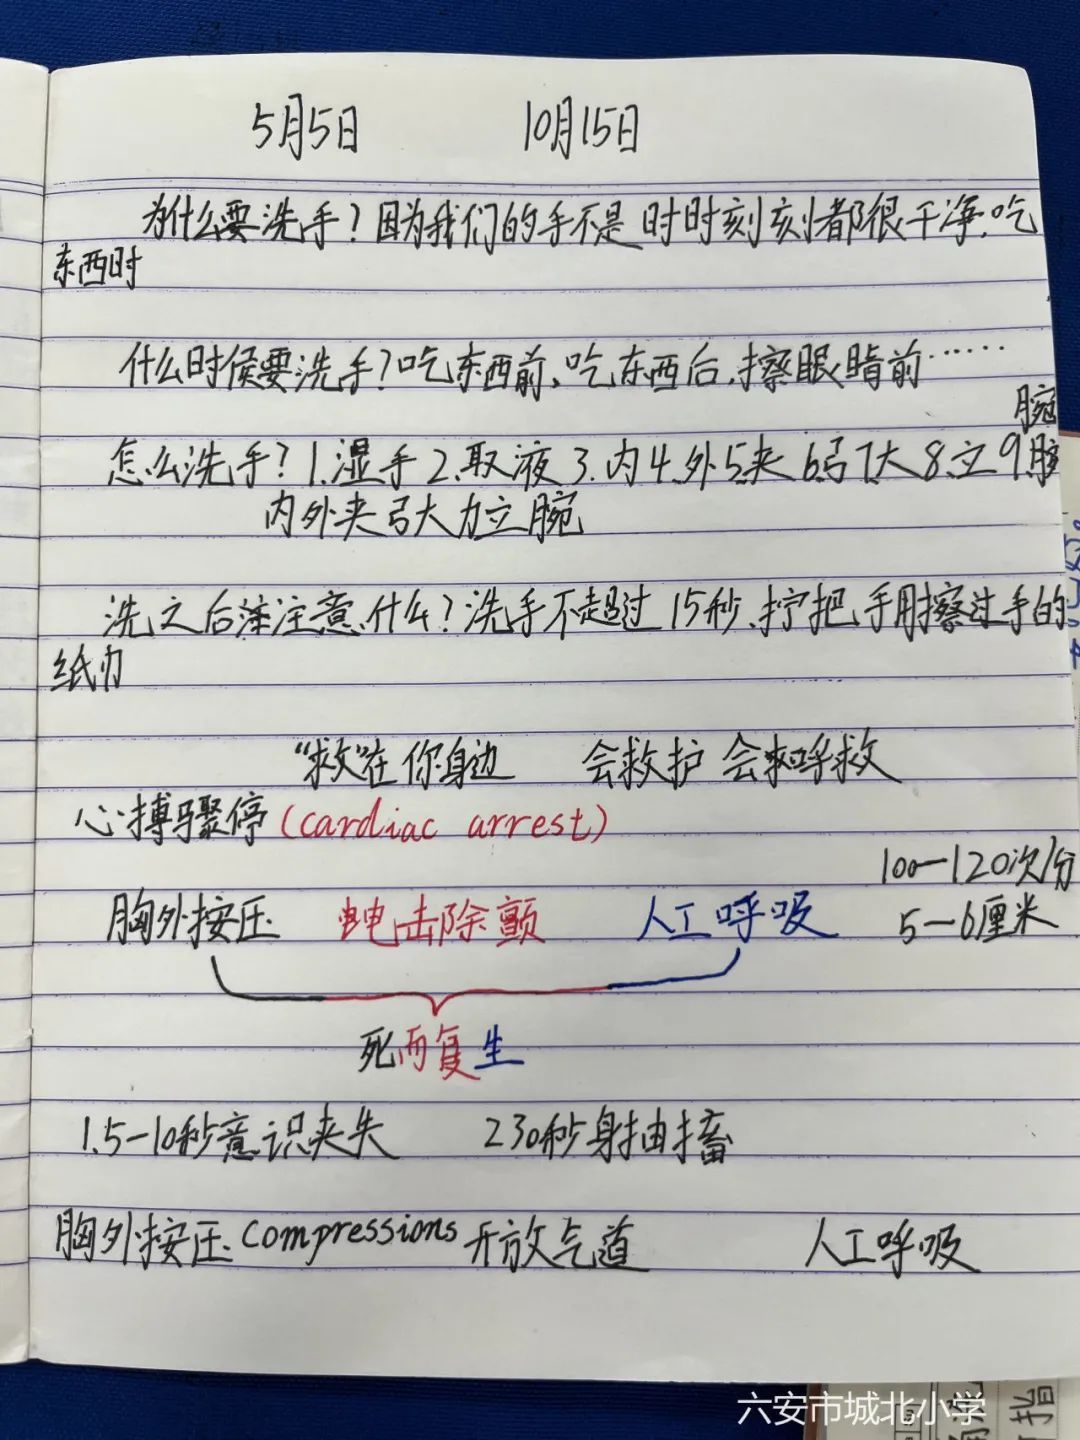 5月5日 10月15日
为什么要洗手?因为我们的手不是时时刻刻都很干净.吃
东西时
什么时候要洗手?吃东西前、吃东西后、擦眼睛前……
腕
怎么洗手?1.湿手2.取液3.内4.外5.夹6.弓7.大8.立9.腕
内外夹弓大力立腕
洗之后注意什么?洗手不超过15秒、拧把手用擦过手的
纸巾
“救”在你身边 会救护 会呼救
心搏骤停(cardiac arrest)
100—120次/分
胸外按压 电击除颤 人工呼吸 5—6厘米
死而复生
1.5-10秒意识夹失 2 30秒身抽搐
胸外按压 compressions 开放气道 人工呼吸
六安市城北小学